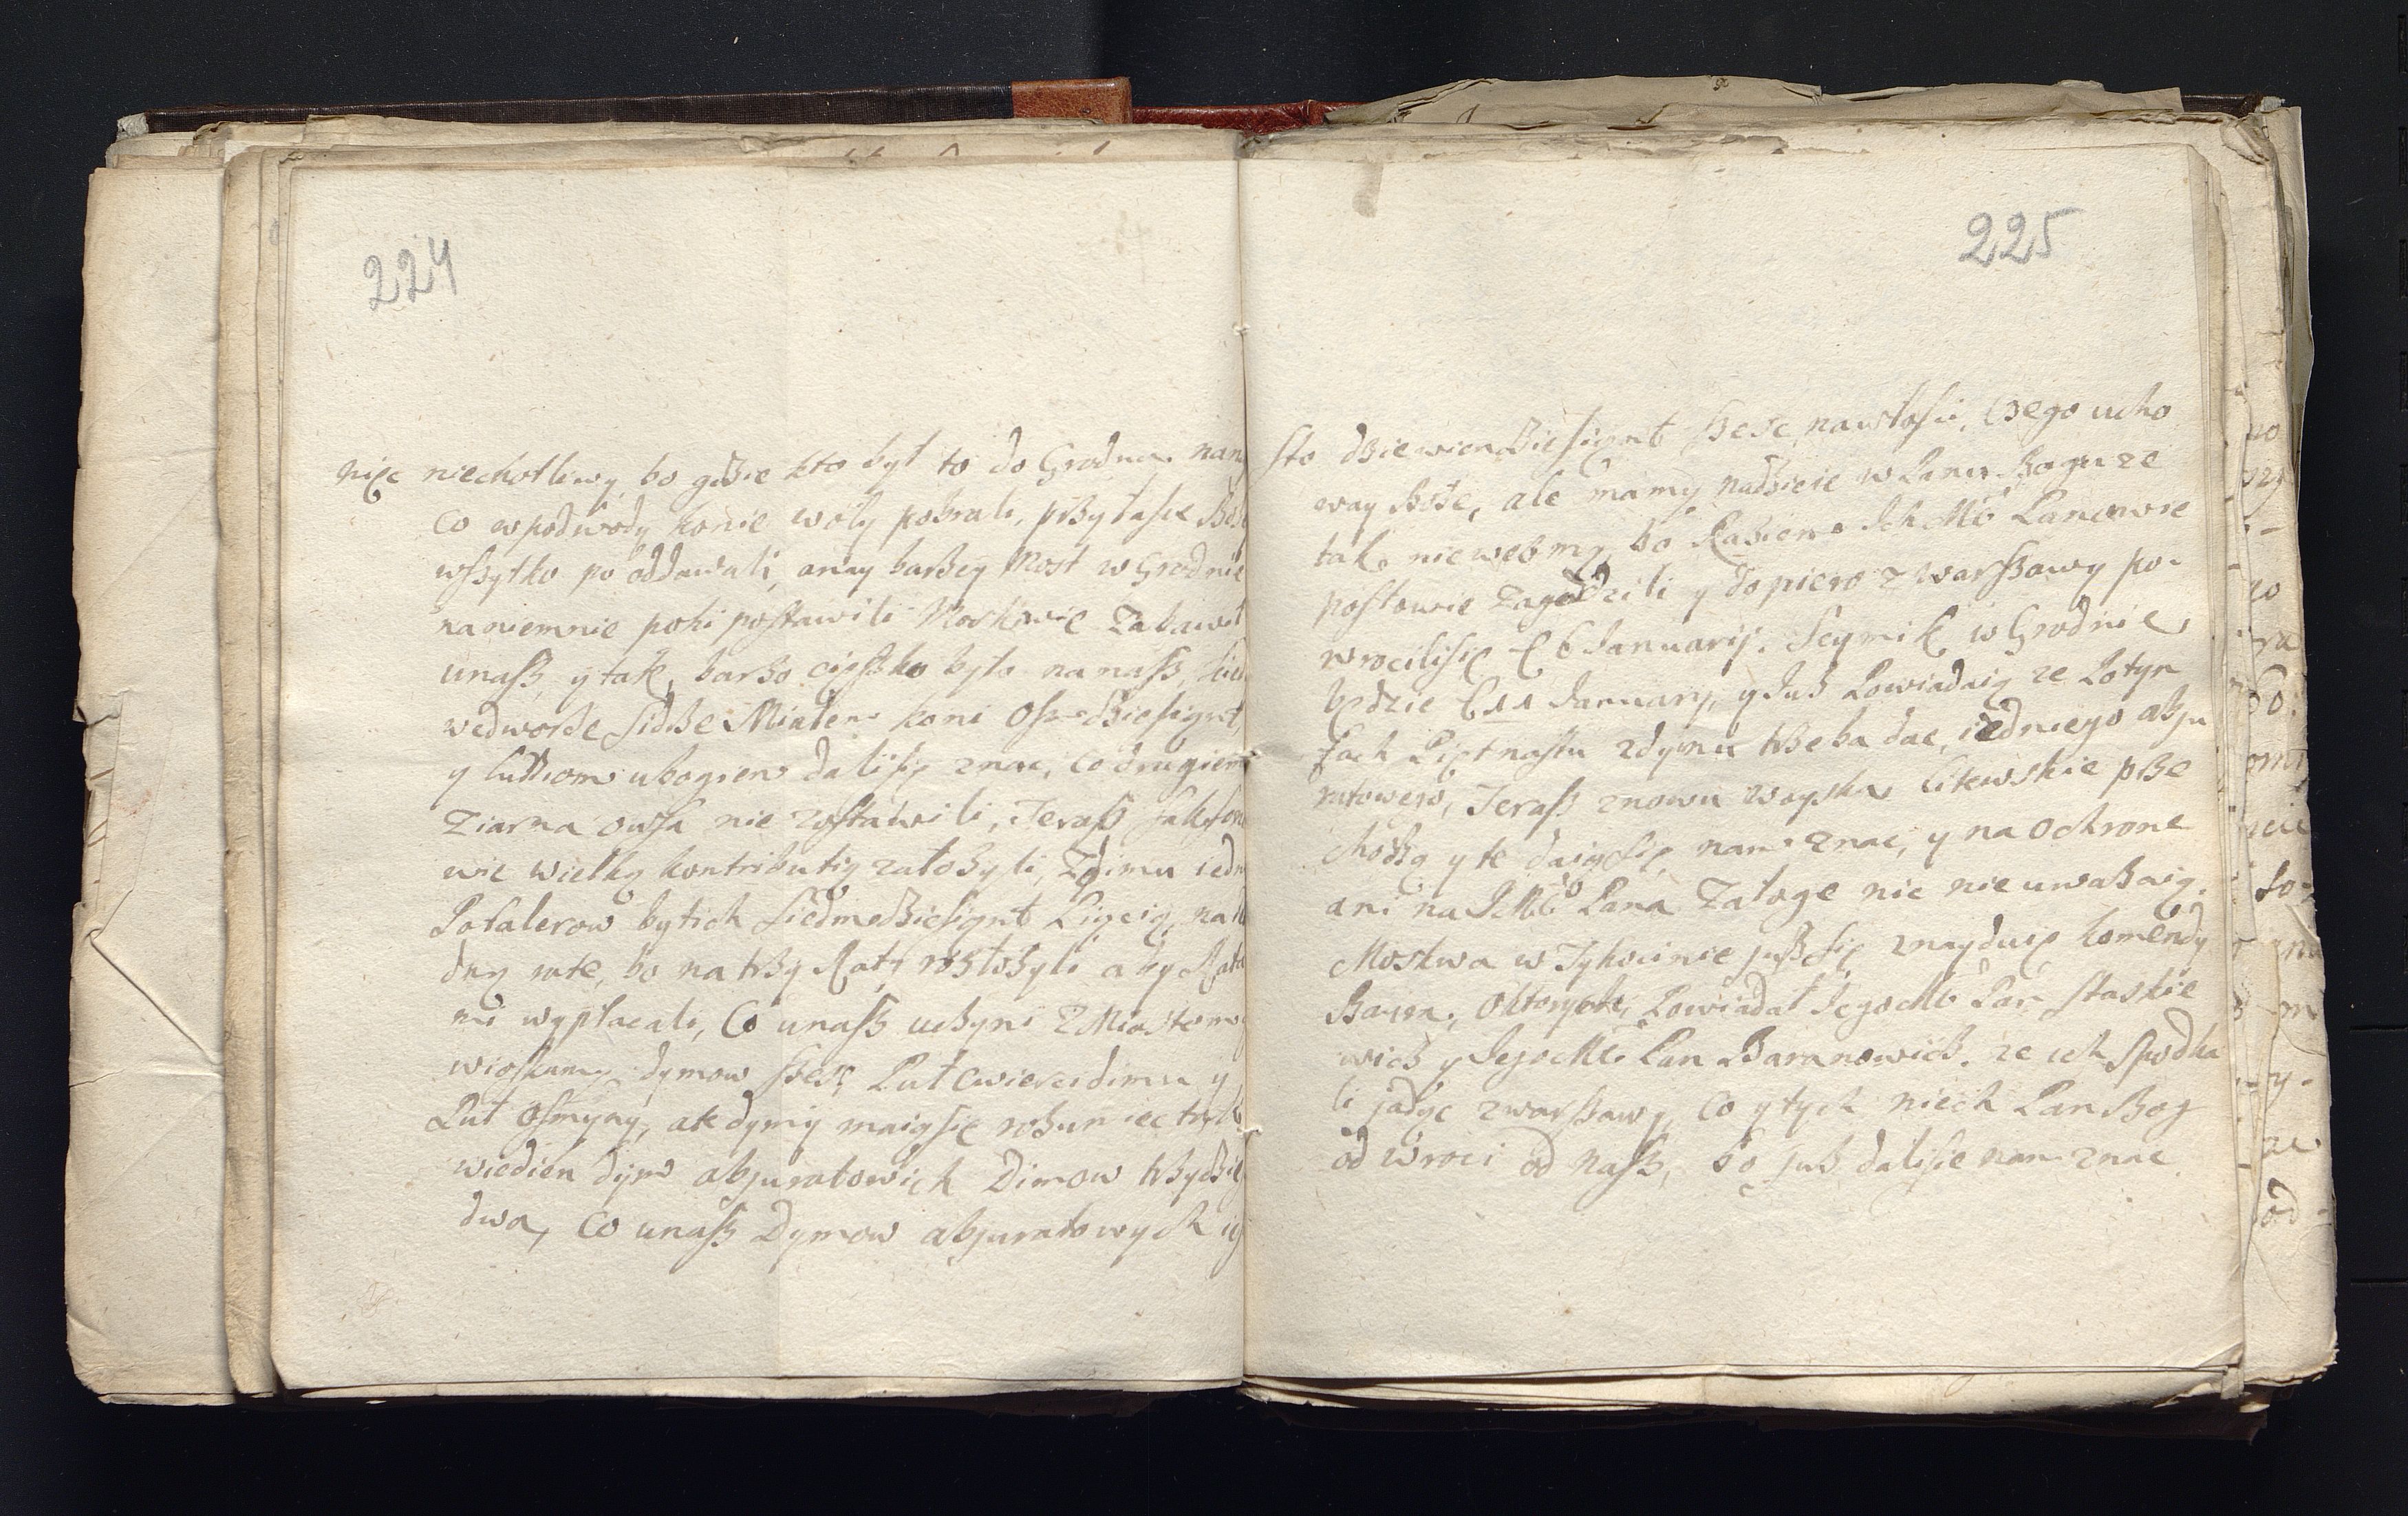 224
nięc niechotliwy, bo gdzie kto był to do Grodna nam
co wpodwody konie woły pobrali, przytasie
wszytko po oddawali, anay barzey Most w Grodnie
naniemnie poki postawili Moskwie Zabawił
unasz, y tak, barzo cięszko było na nasz,
wedworze sidze Miałem koni Osmdziesiąt,
y ludziom ubogiem dalisię znac, co drugiem
Ziarna owsa nie zostawili, Terasz Sakson
wie wielką kontributią założyli, Zdimu iedn
Potalerow bytich siedmdziesiąt Pięcią, na
dną rate, bo na trzy Raty rozłożyli aby Rata
mi wypłacali, Co unasz uczyni Z Miastem
wioskamy dymow szesc Puł cwiercidimu y
Puł osmyny, ale dymy maiąsię rozumiec
wiedien dym abjuratowich Dimow trzydzie
dwa, Co unasz Dymow abjuratowych
225
sto dziewiendziesiąnt szesc, nawłosci, czego ucho
way Boże, ale mamy nadzieie w Panu Bogu ze
tak niewezmą, bo Raziem Ich Mć Panowie
posłowie Zagodzili y dopiero z warszawy po-
wrocilisię 6 Januarij. Seymik w Grodnie
będzie 11 Januarij, y Jusz Powiadaią ze Potyn
fach Piętnastu zdymu trzeba dac, iedniego abju
ratowego, Terasz znowu woyska litewskie prze
chodzą y te daiąsię nam znac, y na Ochrone
ani na JchMć Pana Załoge nic nie uwazaią.
Moskwa w Tykocinie jusz się znayduię komendy
Bawra, Oktorych, Powiadał JegoMć Pan Staskie
wicz y JegoMć Pan Baranowicz. ze ich Spodka
li jadąc zwarszawy, co y tych niech Pan Bog
od wroci od nasz, bo jusz dalisie nam znac